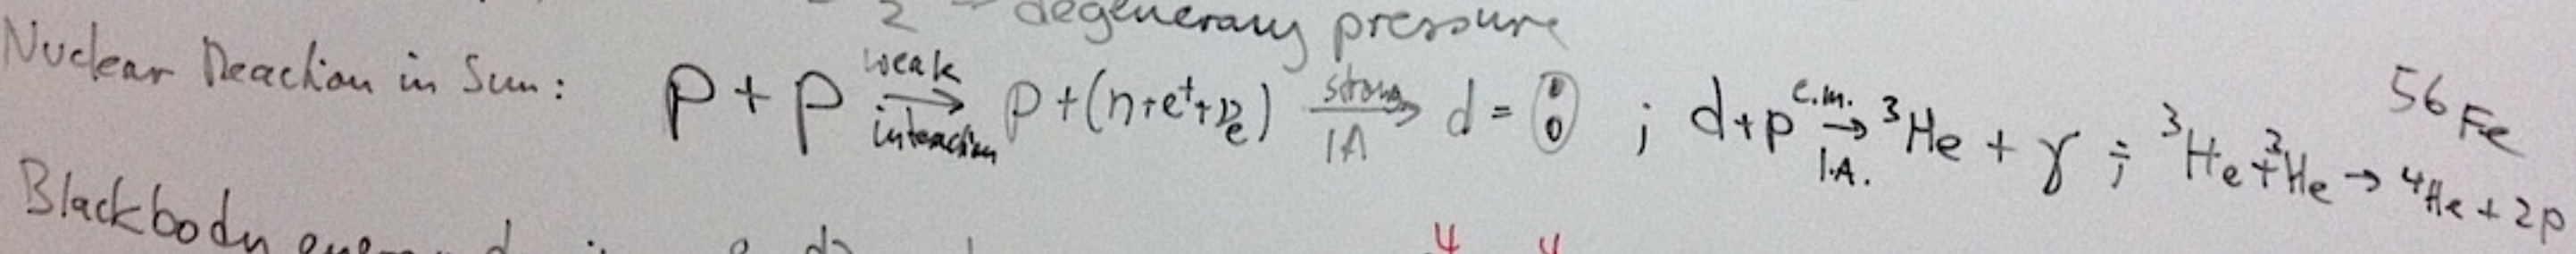 2 degeneracy pressure
Nuclear Reaction in Sun: p + p weak → interaction p + (n+e⁺+νₑ) strong → IA d = ; d+p e.m. → I.A. ³He + γ ; ³He + ³He → ⁴He + 2p
⁵⁶Fe
Blackbody
4 4